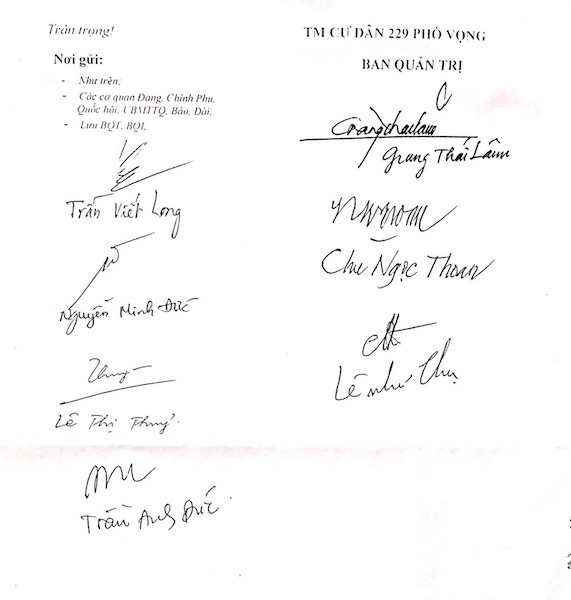 Trân trọng!
Nơi gửi:
- Như trên;
- Các cơ quan Đảng, Chính Phủ, Quốc hội, UBMTTQ, Báo, Đài;
- Lưu BQT, BQL.
Trần Viết Long
Nguyễn Minh Đức
Lê Thị Thuỷ.
Trần Anh Đức.
TM CƯ DÂN 229 PHỐ VỌNG
BAN QUẢN TRỊ
Giang Thái Lâm
Chu Ngọc Thoan
Lê như Thụ